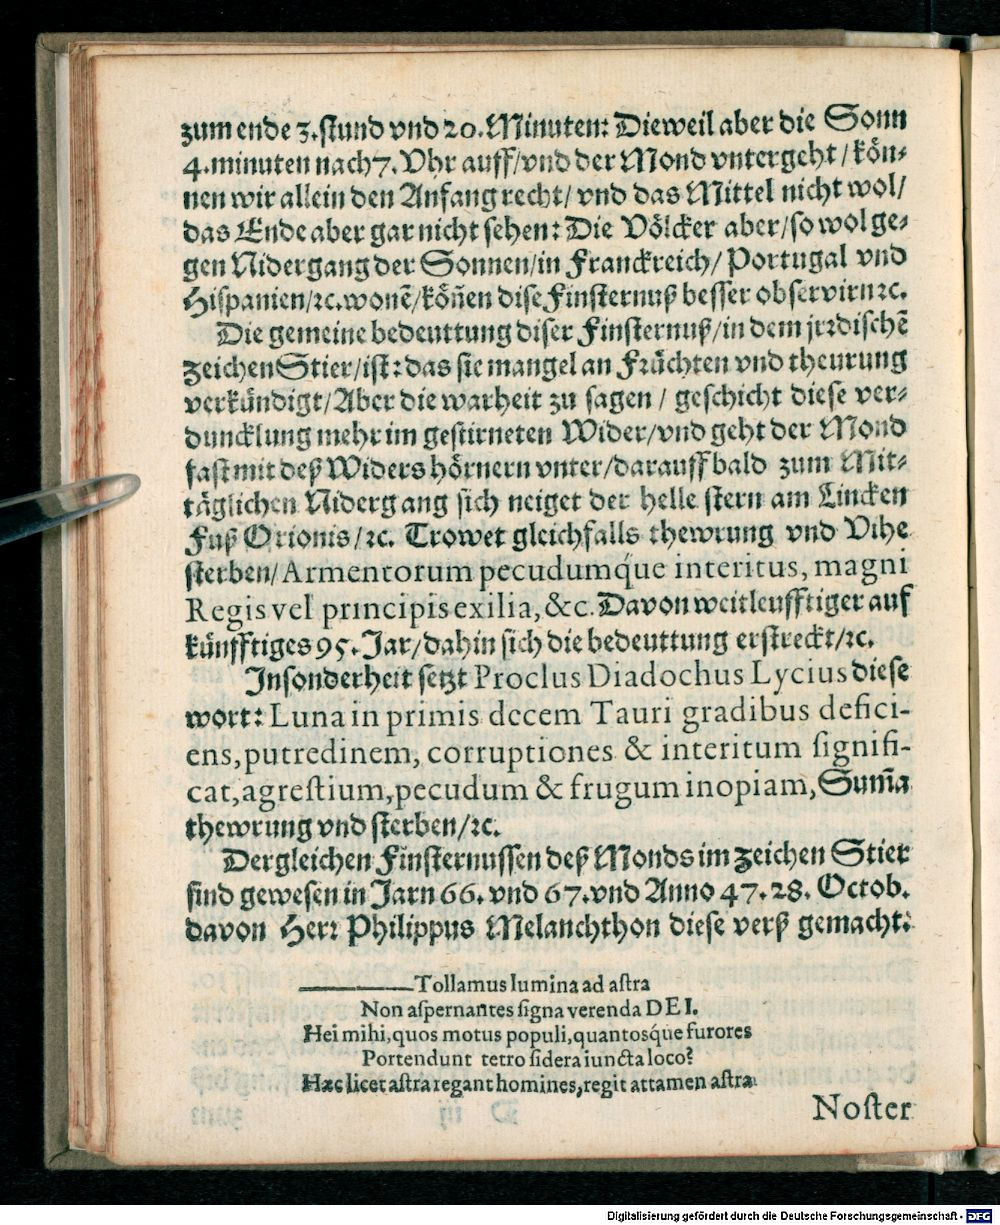 zum ende 3. stund vnd 20. Minuten: Dieweil aber die Sonn
4. minuten nach 7. Vhr auff/ vnd der Mond vntergeht / kön⸗
nen wir allein den Anfang recht/ vnd das Mittel nicht wol/
das Ende aber gar nicht sehen: Die Völcker aber/ so wol ge⸗
gen Nidergang der Sonnen/ in Franckreich/ Portugal vnd
Hispanien/ ꝛc. wonẽ/ köñen dise Finsternuß besser observirn ꝛc.
Die gemeine bedeuttung diser Finsternuß/ in dem jrrdischẽ
zeichen Stier/ ist: das sie mangel an Früchten vnd theurung
verkündigt/ Aber die warheit zu sagen / geschicht diese ver⸗
duncklung mehr im gestirneten Wider/ vnd geht der Mond
fast mit deß Widers hörnern vnter/ darauff bald zum Mit⸗
täglichen Nidergang sich neiget der helle stern am Lincken
Fuß Orionis/ ꝛc. Trowet gleichfalls thewrung vnd Vihe
sterben/ Armentorum pecudumq́ue interitus, magni
Regis vel principis exilia, &c. Davon weitleufftiger auf
künfftiges 95. Jar/ dahin sich die bedeuttung erstreckt/ ꝛc.
Insonderheit setzt Proclus Diadochus Lycius diese
wort: Luna in primis decem Tauri gradibus defici-
ens, putredinem, corruptiones & interitum ſignifi-
cat, agreſtium, pecudum & frugum inopiam, Sum̃a
thewrung vnd sterben/ ꝛc.
Dergleichen Finsternussen deß Monds im zeichen Stier
sind gewesen in Jarn 66. vnd 67. vnd Anno 47. 28. Octob.
davon Herr Philippus Melanchthon diese verß gemacht:
———Tollamus lumina ad aſtra
Non aſpernantes ſigna verenda DEI.
Hei mihi, quos motus populi, quantosq́ue furores
Portendunt tetro ſidera iuncta loco?
Hæc licet aſtra regant homines, regit attamen aſtra
Noſter
Digitalisierung gefördert durch die Deutsche Forschungsgemeinschaft - DFG